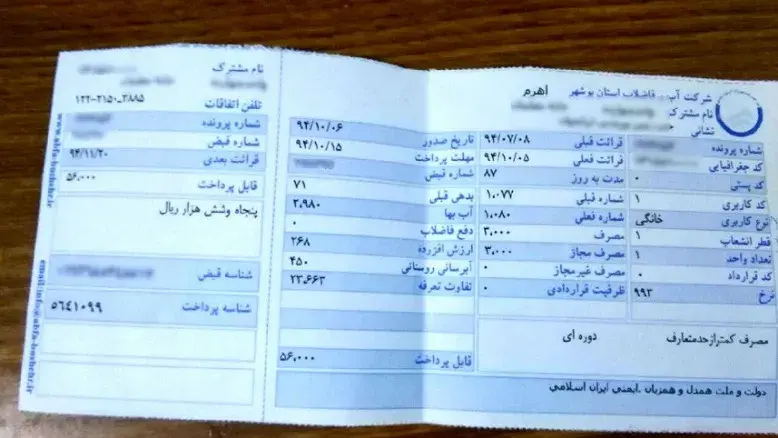 شرکت آب و فاضلاب استان بوشهر اهرم
نام مشترک
نشانی
شماره پرونده
کد جغرافیایی
کد پستی ۰
کد کاربری ۱
نوع کاربری خانگی
قطر انشعاب ۱
تعداد واحد ۱
کد قرارداد ۰
نرخ ۹۹۳
قرائت قبلی ۹۴/۰۷/۰۸
قرائت فعلی ۹۴/۱۰/۰۵
مدت به روز ۸۷
شماره قبلی ۱،۰۷۷
شماره فعلی ۱،۰۸۰
مصرف ۳،۰۰۰
مصرف مجاز ۳،۰۰۰
مصرف غیرمجاز ۰
ظرفیت قراردادی ۰
تاریخ صدور ۹۴/۱۰/۰۶
مهلت پرداخت ۹۴/۱۰/۱۵
شماره قبض
بدهی قبلی ۷۱
آب بها ۲،۹۸۰
دفع فاضلاب ۰
ارزش افزرده ۲۶۸
آبرسانی روستائی ۴۵۰
تفاوت تعرفه ۲۳،۶۶۳
قابل پرداخت ۵۶،۰۰۰
مصرف کمترازحدمتعارف دوره ای
دولت و ملت همدل و همزبان .ایمنی ایران اسلامی
نام مشترک
تلفن اتفاقات ۱۲۲-۲۱۵۰_۳۸۸۵
شماره پرونده
شماره قبض
قرائت بعدی ۹۴/۱۱/۲۰
قابل پرداخت ۵۶،۰۰۰
پنجاه وشش هزار ریال
شناسه قبض
شناسه پرداخت ۵۶۴۱۰۹۹
www.abfa-bushehr.ir
email:info@abfa-bushehr.ir